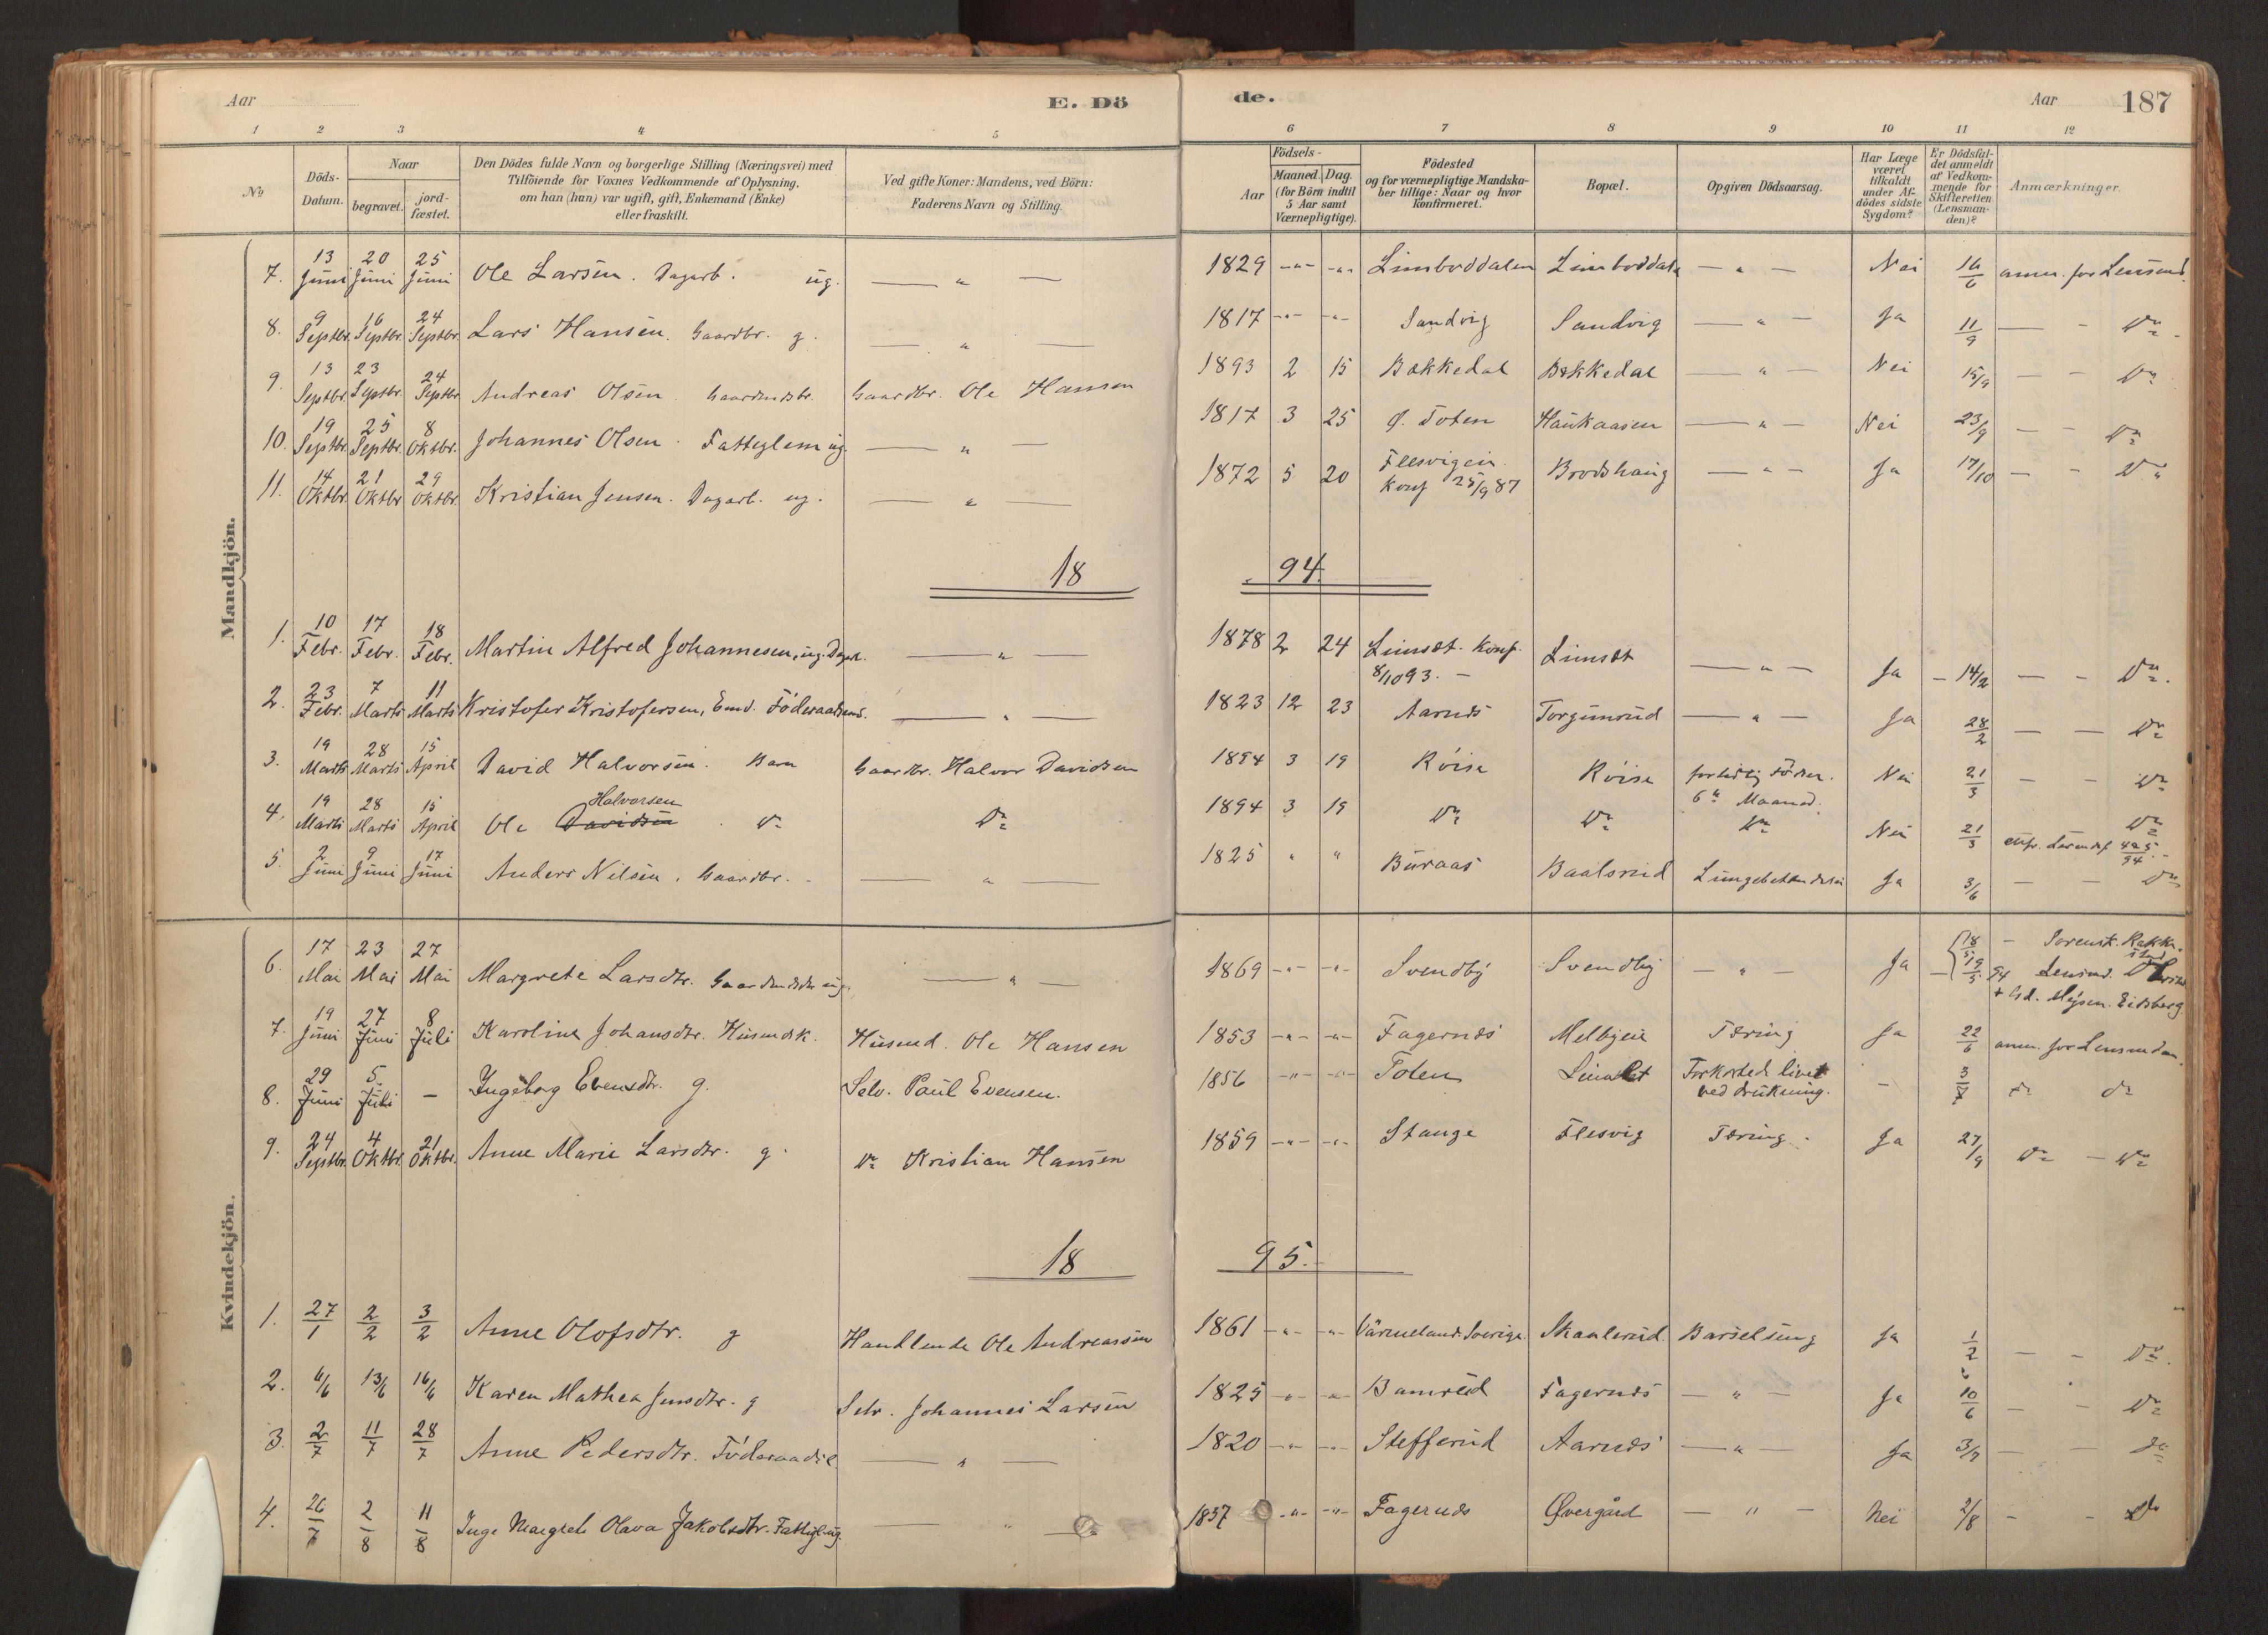 Aar E. Dö de. Aar 187
1 2 3 4 5 6 7 8 9 10 11 12
No
Döds-Datum.
Naar
begravet.
jord-fæstet.
Den Dödes fulde Navn og borgerlige Stilling (Næringsvei) med
Tilföiende for Voxnes Vedkommende af Oplysning,
om han (hun) var ugift, gift, Enkemand (Enke)
eller fraskilt.
Ved gifte Koner: Mandens, ved Börn:
Faderens Navn og Stilling.
Födsels-
Aar
Maaned. Dag.
(for Börn indtil
5 Aar samt
Værnepligtige).
Födested
og for værnepligtige Mandska-
ber tillige: Naar og hvor
konfirmeret.
Bopæl.
Opgiven Dödsaarsag.
Har Læge
været
tilkaldt
under Af-
dödes sidste
Sygdom?
Er Dödsfal-
det anmeldt
af Vedkom-
mende for
Skifteretten
(Lensman-
den)?
Anmærkninger.
Mandkjön.
7. 13 Juni 20 Juni 25 Juni Ole Larsen. Dagarb. ug. — " — 1829 -"- -"- Limboddalen Limboddalen — " — Nei 16/6 anm. for Lensmd.
8. 9 Septbr. 16 Septbr. 24 Septbr. Lars Hansen. Gaardbr. g. — " — 1817 -"- -"- Sandvig Sandvig — " — Ja 11/9 — - Do
9. 13 Septbr. 23 Septbr. 24 Septbr. Andreas Olsen. Gaardmdsbr. Gaardbr. Ole Hansen 1893 2 15 Bækkedal Bækkedal — " — Nei 15/9 — — Do
10. 19 Septbr. 25 Septbr. 8 Oktbr. Johannes Olsen. Fatteglem ug. — " — 1817 3 25 Ø. Toten Haukaasen — " — Nei 23/9 — — Do
11. 14 Oktbr. 21 Oktbr 29 Oktbr. Kristian Jensen. Dagarb. ug. — " — 1872 5 20 Flesvigein. Konf 25/9 87 Brodshaug — " — Ja 17/10 — — Do
18 94.
1. 10 Febr. 17 Febr. 18 Febr. Martin Alfred Johannesen, ug. Dagarb. — " — 1878 2 24 Limsæt. Konf. 8/10 93. — Limsæt — " — Ja — 14/2 — - Do.
2. 23 Febr. 7 Marts 11 Marts Kristofer Kristofersen, Emd. Föderaadsmd. — " — 1823 12 23 Aarnæs Torgunrud — " — Ja 28/2 — — Do
3. 19 Marts 28 Marts 15 April David Halvorsen. Barn Gaardbr. Halvor Davidsen 1894 3 19 Röise Röise for tidlig Födsel. 6te Maaned. Nei 21/3 — - Do
4. 19 Marts 28 Marts 15 April Ole Davidsen Halvorsen. Do Do 1894 3 19 Do Do Do Nei 21/3 Do
5. 2 Juni 9 Juni 17 Juni Anders Nilsen. Gaardbr. — " — 1825 " " Buraas Baalsrud Lungebetændelse Ja 3/6 — — Do
Kvindekjön.
6. 17 Mai 23 Mai 27 Mai Margrete Larsdtr. Gaardmdsdtr ug. — " — 1869 -"- -"- Svendby Svendby — " — Ja 18/5 19/5 94 — Sorensk. Lensmd. + Gd. Mysen. Eidsberg
7. 19 Juni 27 Juni 8 Juli Karoline Johansdtr. Husmdsk. Husmd. Ole Hansen 1853 -"- -"- Fagernæs Melbyeie Tæring Ja 22/6 anm. for Lensmdan.
8. 29 Juni 5. Juli — Ingeborg Evensdtr. g. Selv. Paul Evensen. 1856 -"- -"- Toten Limsæt Forkortede livet ved drukning. - 3/7 do do
9. 24 Septbr. 4 Oktbr. 21 Oktbr. Anne Marie Larsdtr. g. Do Kristian Hansen 1859 -"- -"- Stange Flesvig Tæring. Ja 27/9 Do — Do
18 95.
1. 27/1 2/2 3/2 Anne Olofsdtr. g Handlende Ole Andreassen 1861 -"- -"- Värmeland. Sverige Skanlerud Barselseng Ja 1/2 — - Do.
2. 6/6 13/6 16/6 Karen Mathea Jensdtr. g Selv. Johannes Larsen 1825 -"- -"- Bamrud Fagernæs — " — Ja 10/6 — - Do
3. 2/7 11/7 28/7 Anne Pedersdtr. Föderaadse. — " — 1820 -"- -"- Stefferud Aarnæs — " — Ja 3/7 — — Do
4. 26/7 2/8 11/8 Inge Margrete Olava Jakobsdtr. Fattigl. ug. — " — 1837 -"- -"- Fagernæs Øvergård — " — Nei 2/8 - - Do